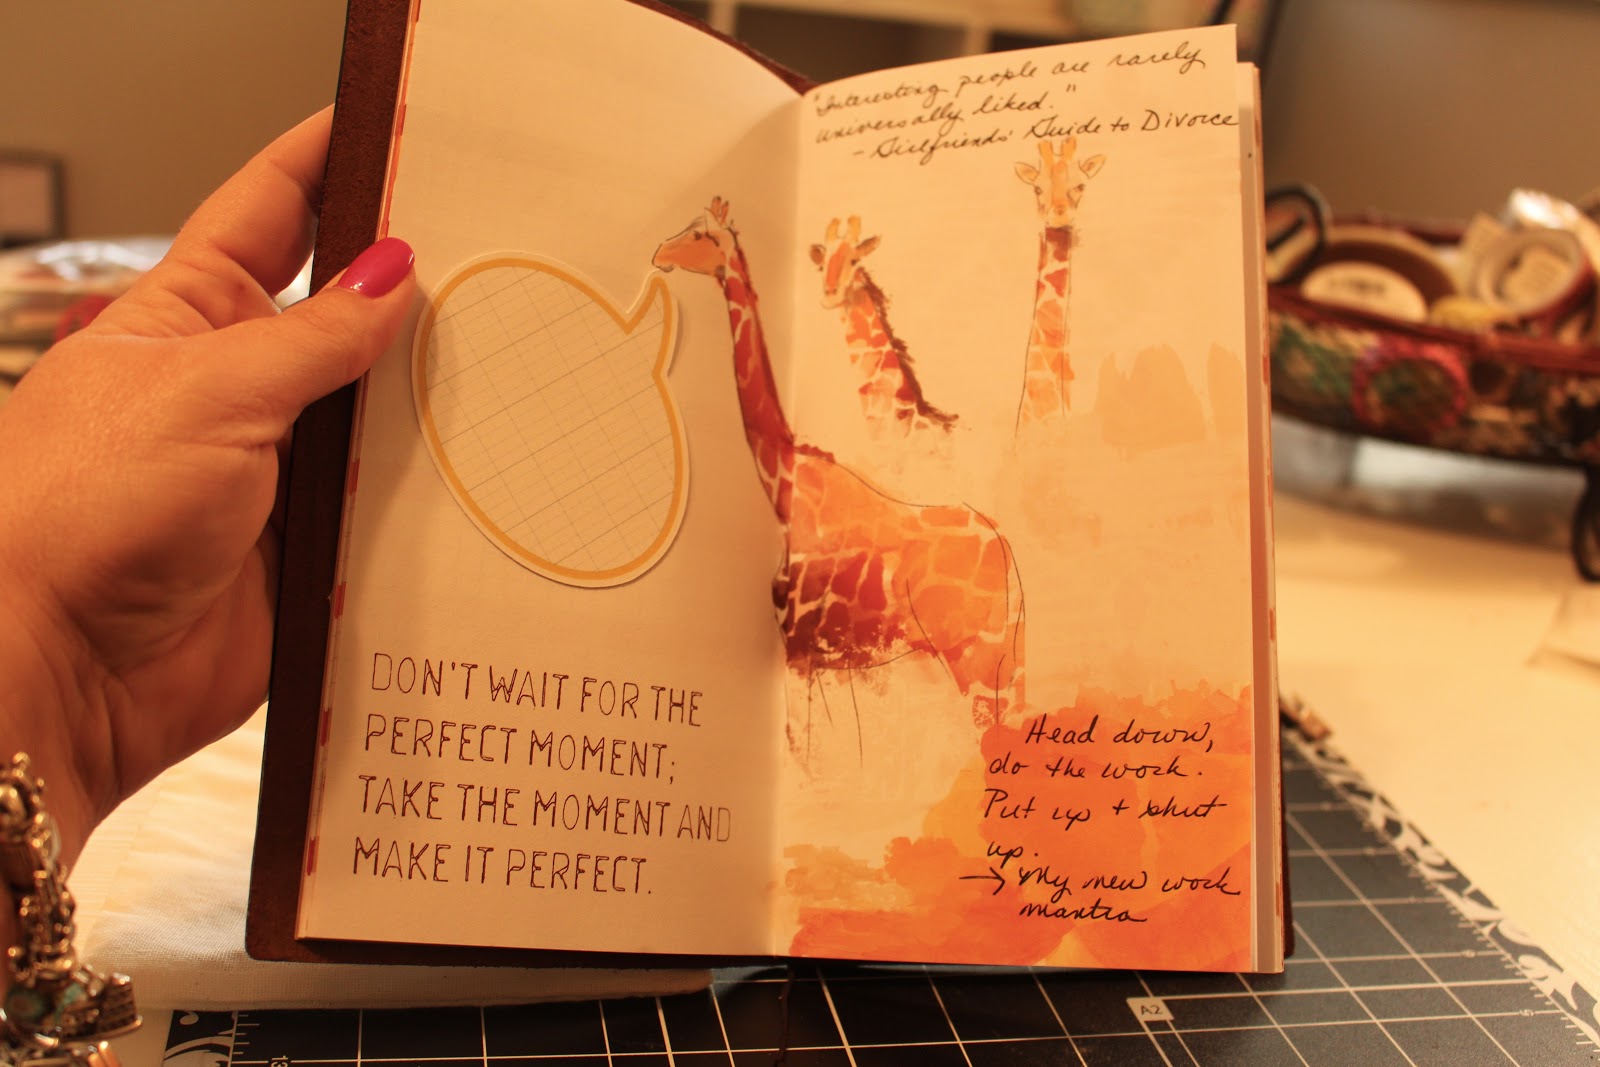 DON'T WAIT FOR THE
PERFECT MOMENT;
TAKE THE MOMENT AND
MAKE IT PERFECT.
"Interesting people are rarely
universally liked."
- Girlfriends' Guide to Divorce
Head down,
do the work.
Put up + shut
up.
→ My new work
mantra
A2
13